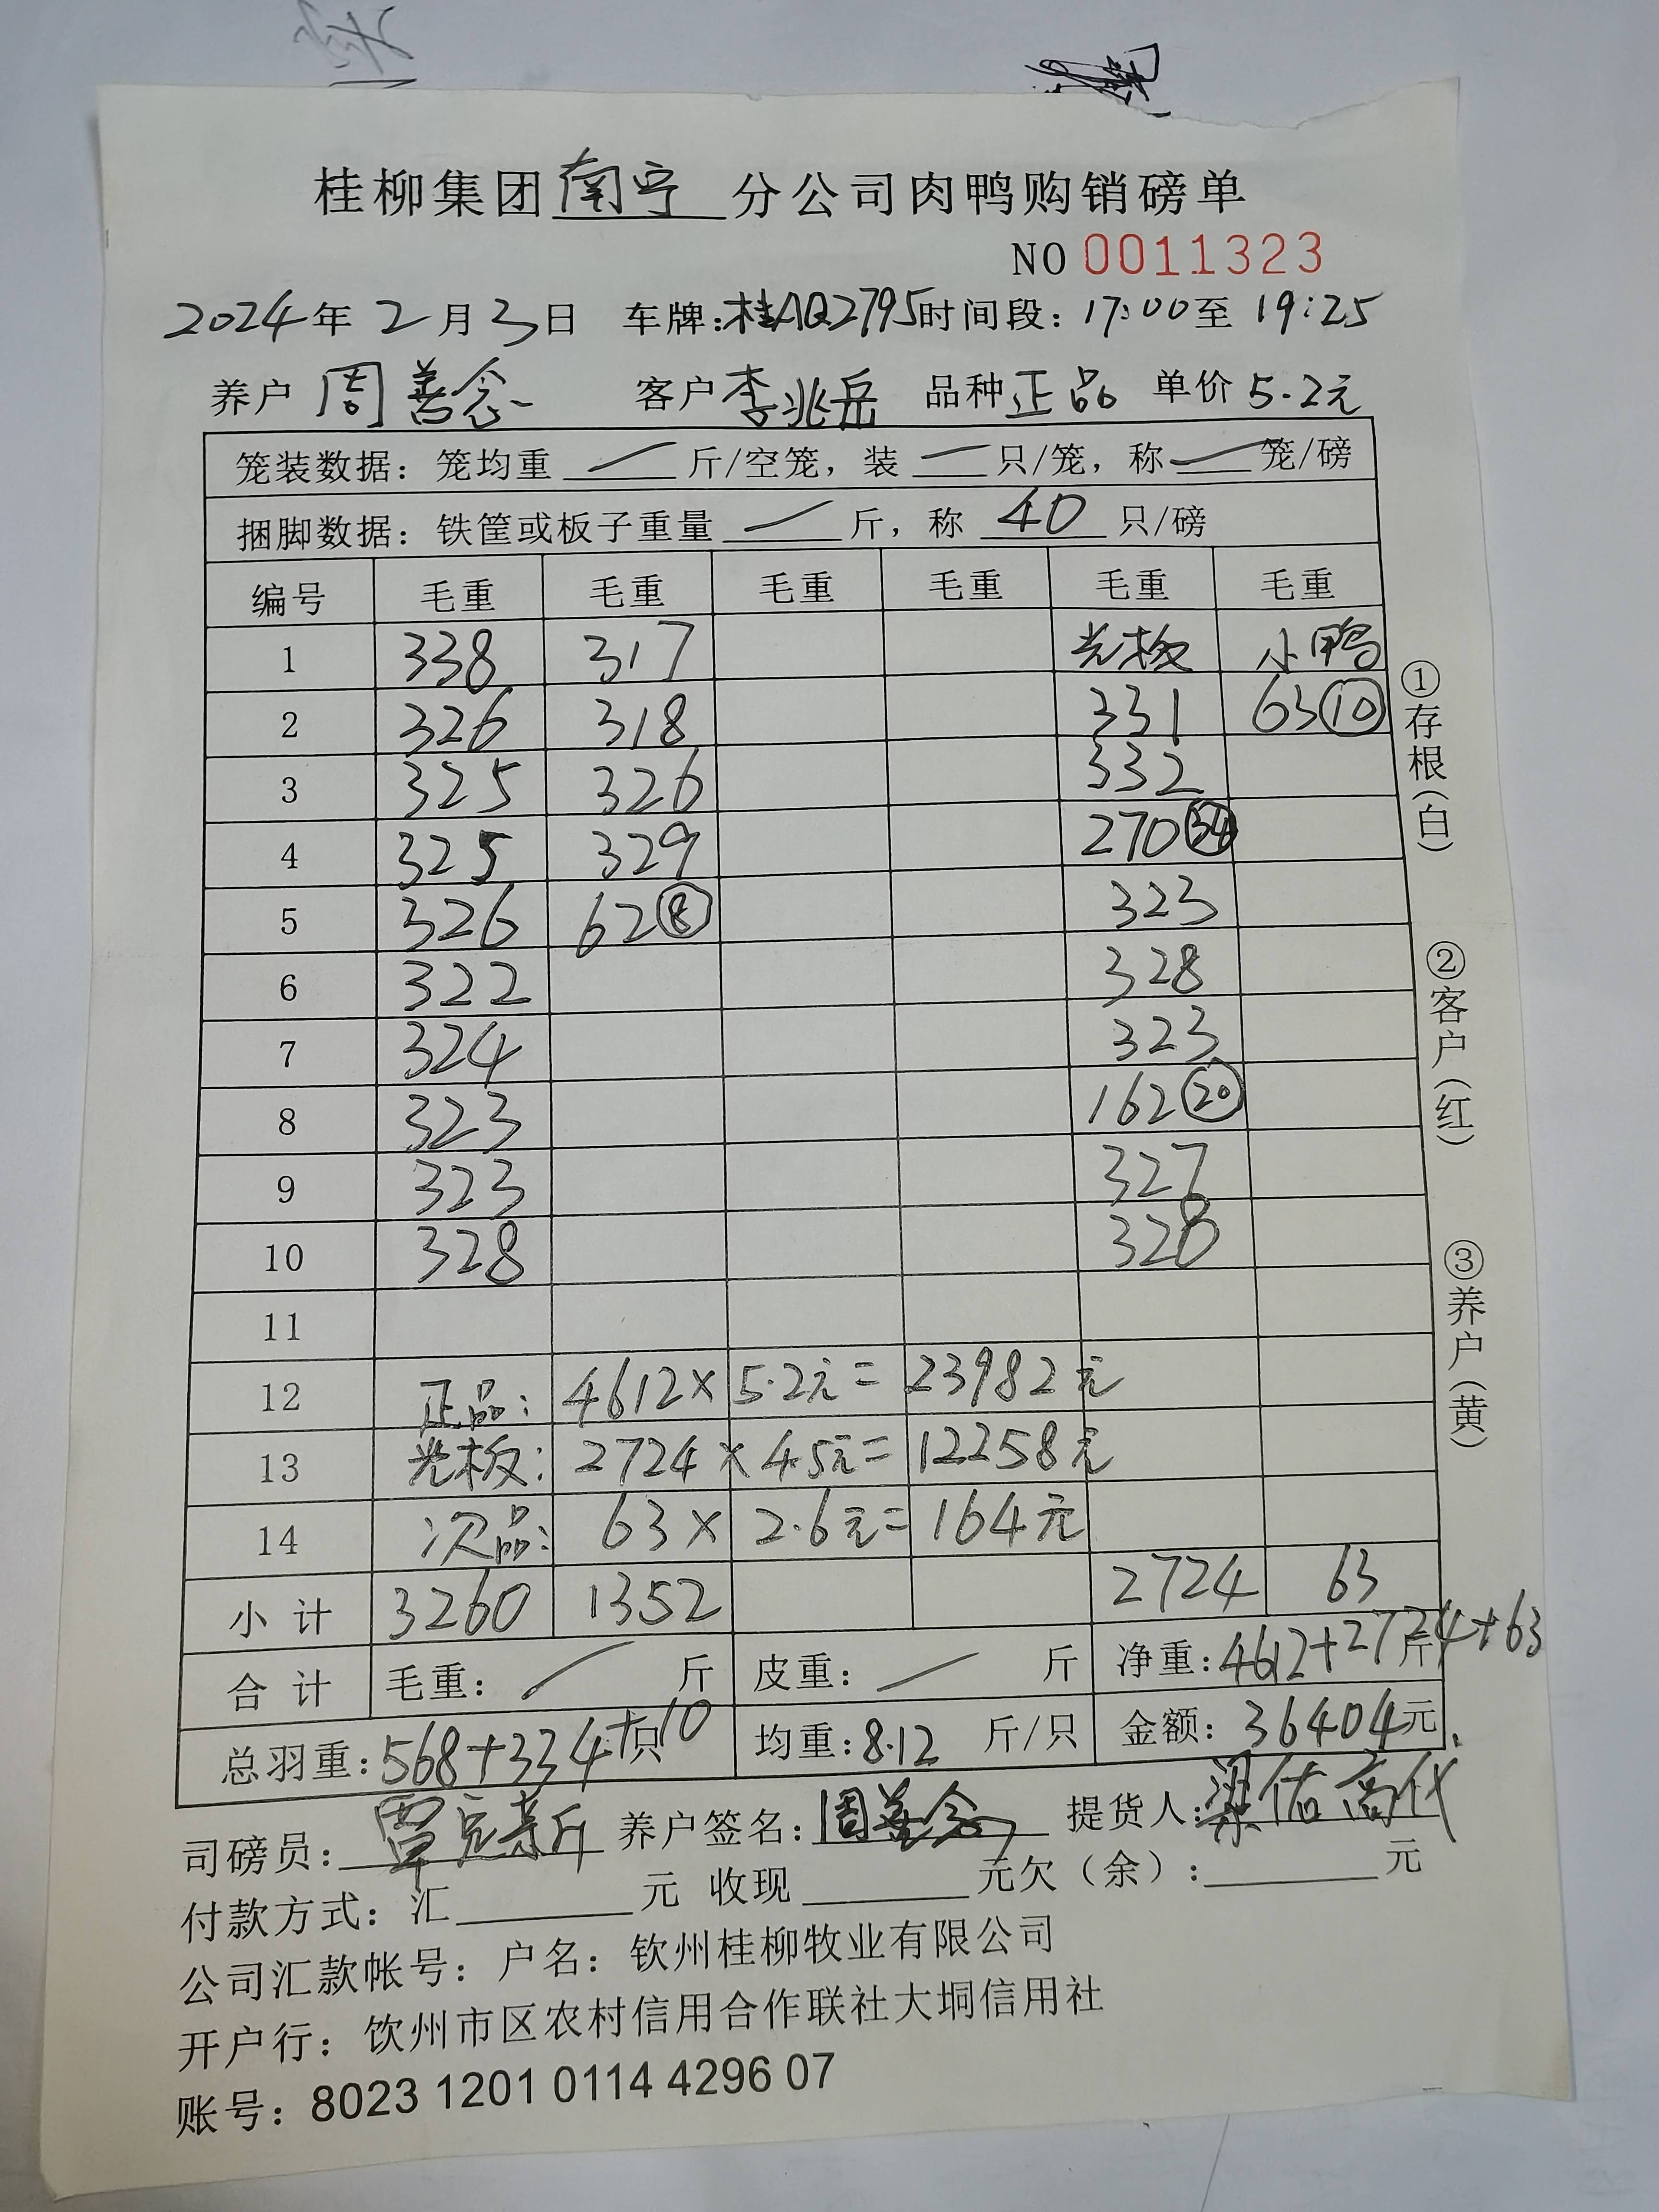 桂柳集团南宁分公司肉鸭购销磅单
NO 0011323
2024年2月3日 车牌:桂AQ2795 时间段: 17:00至 19:25
养户 周善念 客户 李兆岳 品种 正品 单价 5.2元
笼装数据: 笼均重 — 斤/空笼, 装 — 只/笼, 称 — 笼/磅
捆脚数据: 铁筐或板子重量 — 斤, 称 40 只/磅
编号 毛重 毛重 毛重 毛重 毛重 毛重
1 338 317 光板 小鸭
2 326 318 331 63⑩
3 325 326 332
4 325 329 270㉞
5 326 62⑧ 323
6 322 328
7 324 323
8 323 162⑳
9 323 327
10 328 328
11
12 正品: 4612× 5.2元= 23982元
13 光板: 2724× 4.5元= 12258元
14 次品: 63× 2.6元= 164元
小计 3260 1352 2724 63
合计 毛重: / 斤 皮重: / 斤 净重: 4612+2724+63 斤
总羽重: 568+334+10 只 均重: 8.12 斤/只 金额: 36404元
司磅员: 养户签名: 周善念 提货人: 梁佑高代
付款方式: 汇 元 收现 元欠(余): 元
公司汇款帐号: 户名: 钦州桂柳牧业有限公司
开户行: 饮州市区农村信用合作联社大垌信用社
账号: 8023 1201 0114 4296 07
①存根(白)
②客户(红)
③养户(黄)